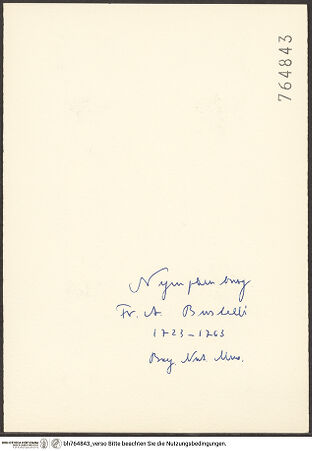 764843
Nymphenburg
Fr. A. Bustelli
1723-1763
Bay. Nat. Mus.
bh764843_verso Bitte beachten Sie die Nutzungsbedingungen.